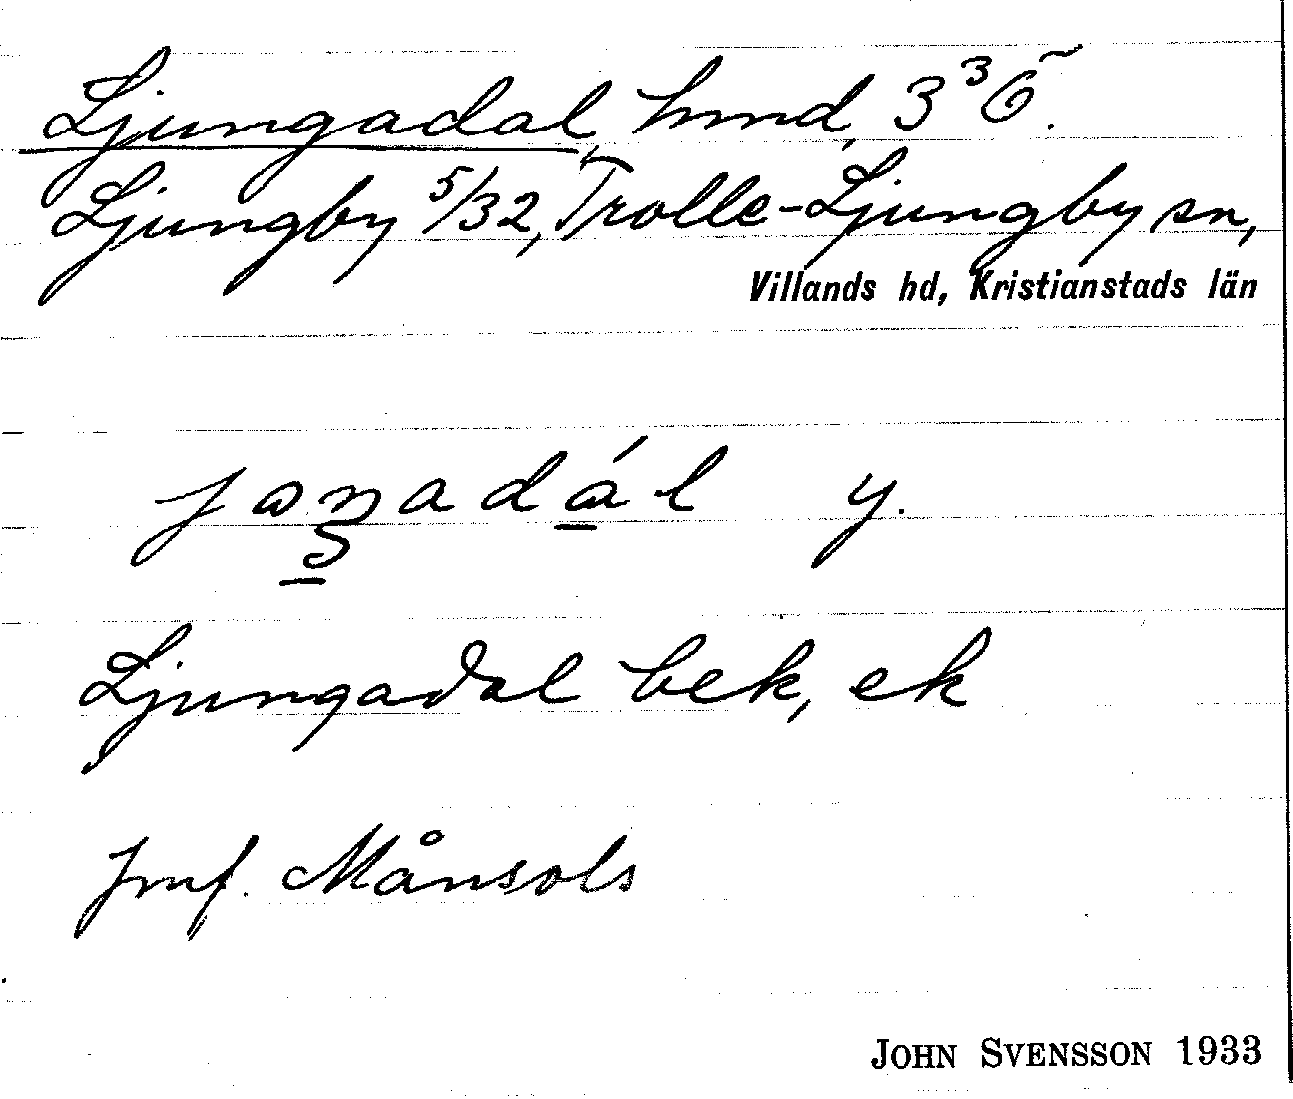 Ljungadal, hmd, 3³Ö.
Ljungby 5/32, Trolle-Ljungby sn,
Villands hd, Kristianstads län
y.
Ljungadal bek, ek
Jmf. Månsols
JOHN SVENSSON 1933